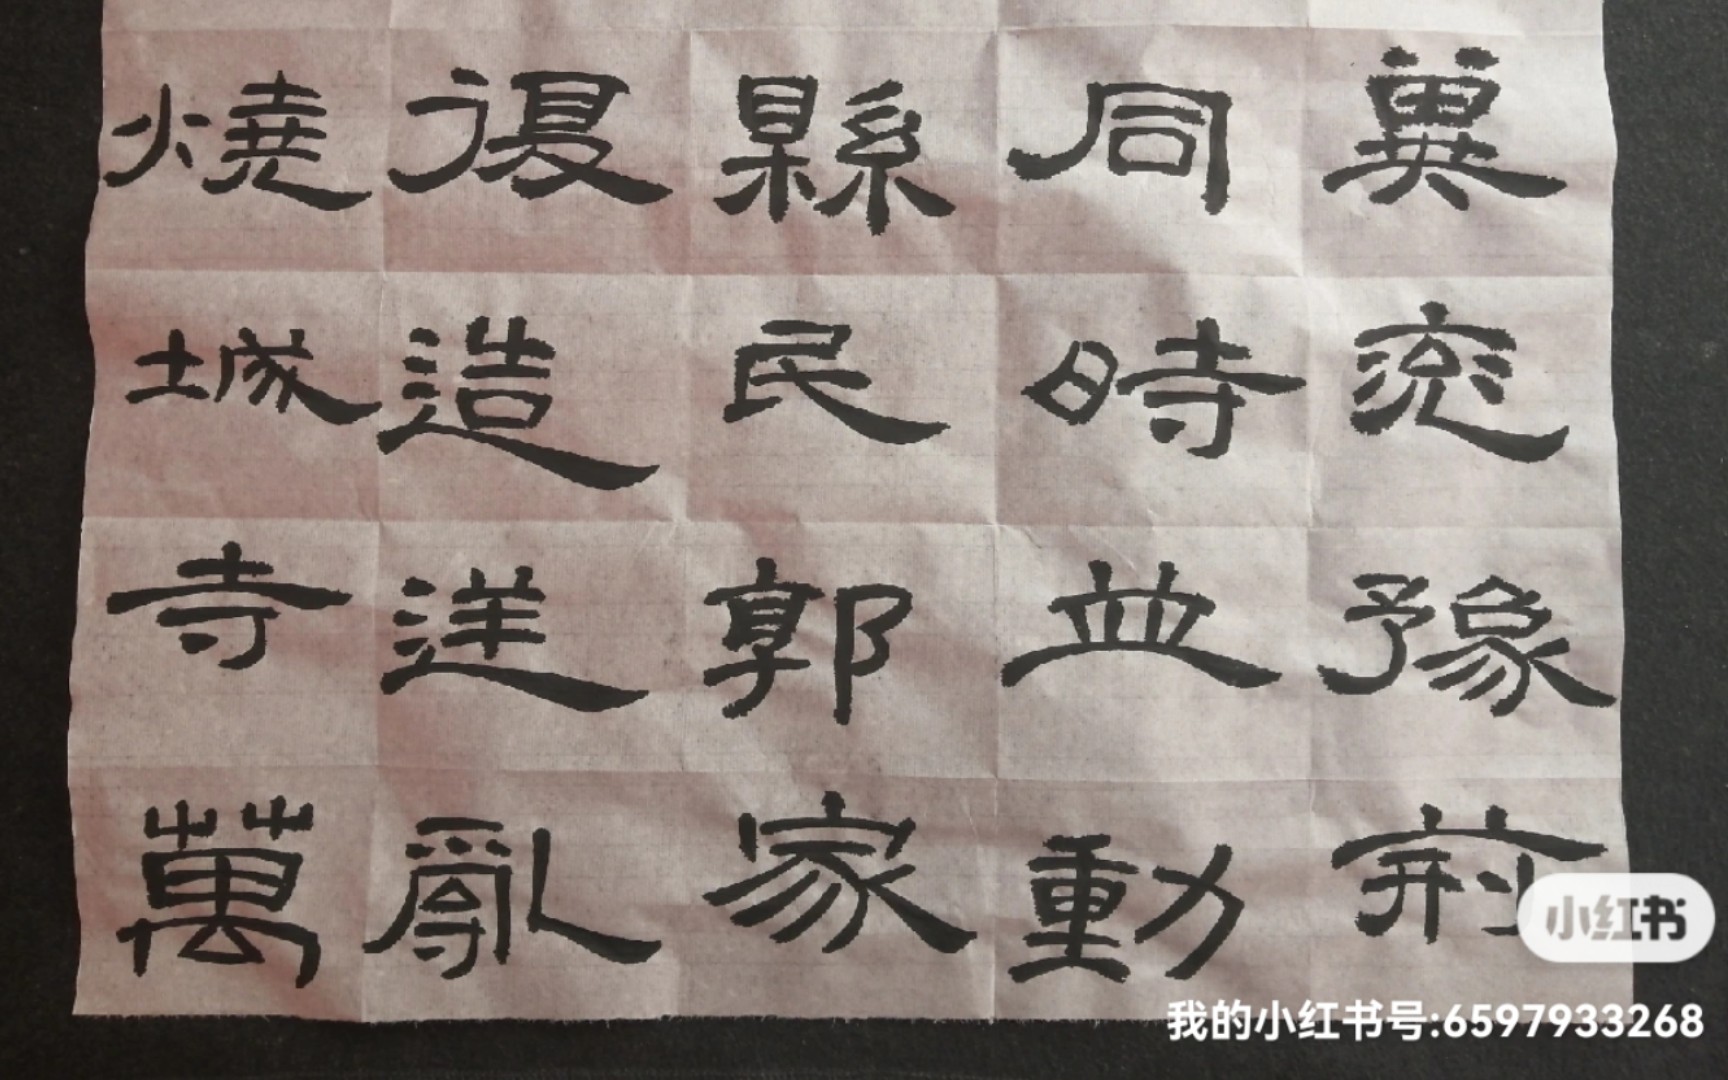 冀兖豫荊
同時並動
縣民郭家
復造逆亂
燒城寺萬
小红书
我的小红书号:6597933268